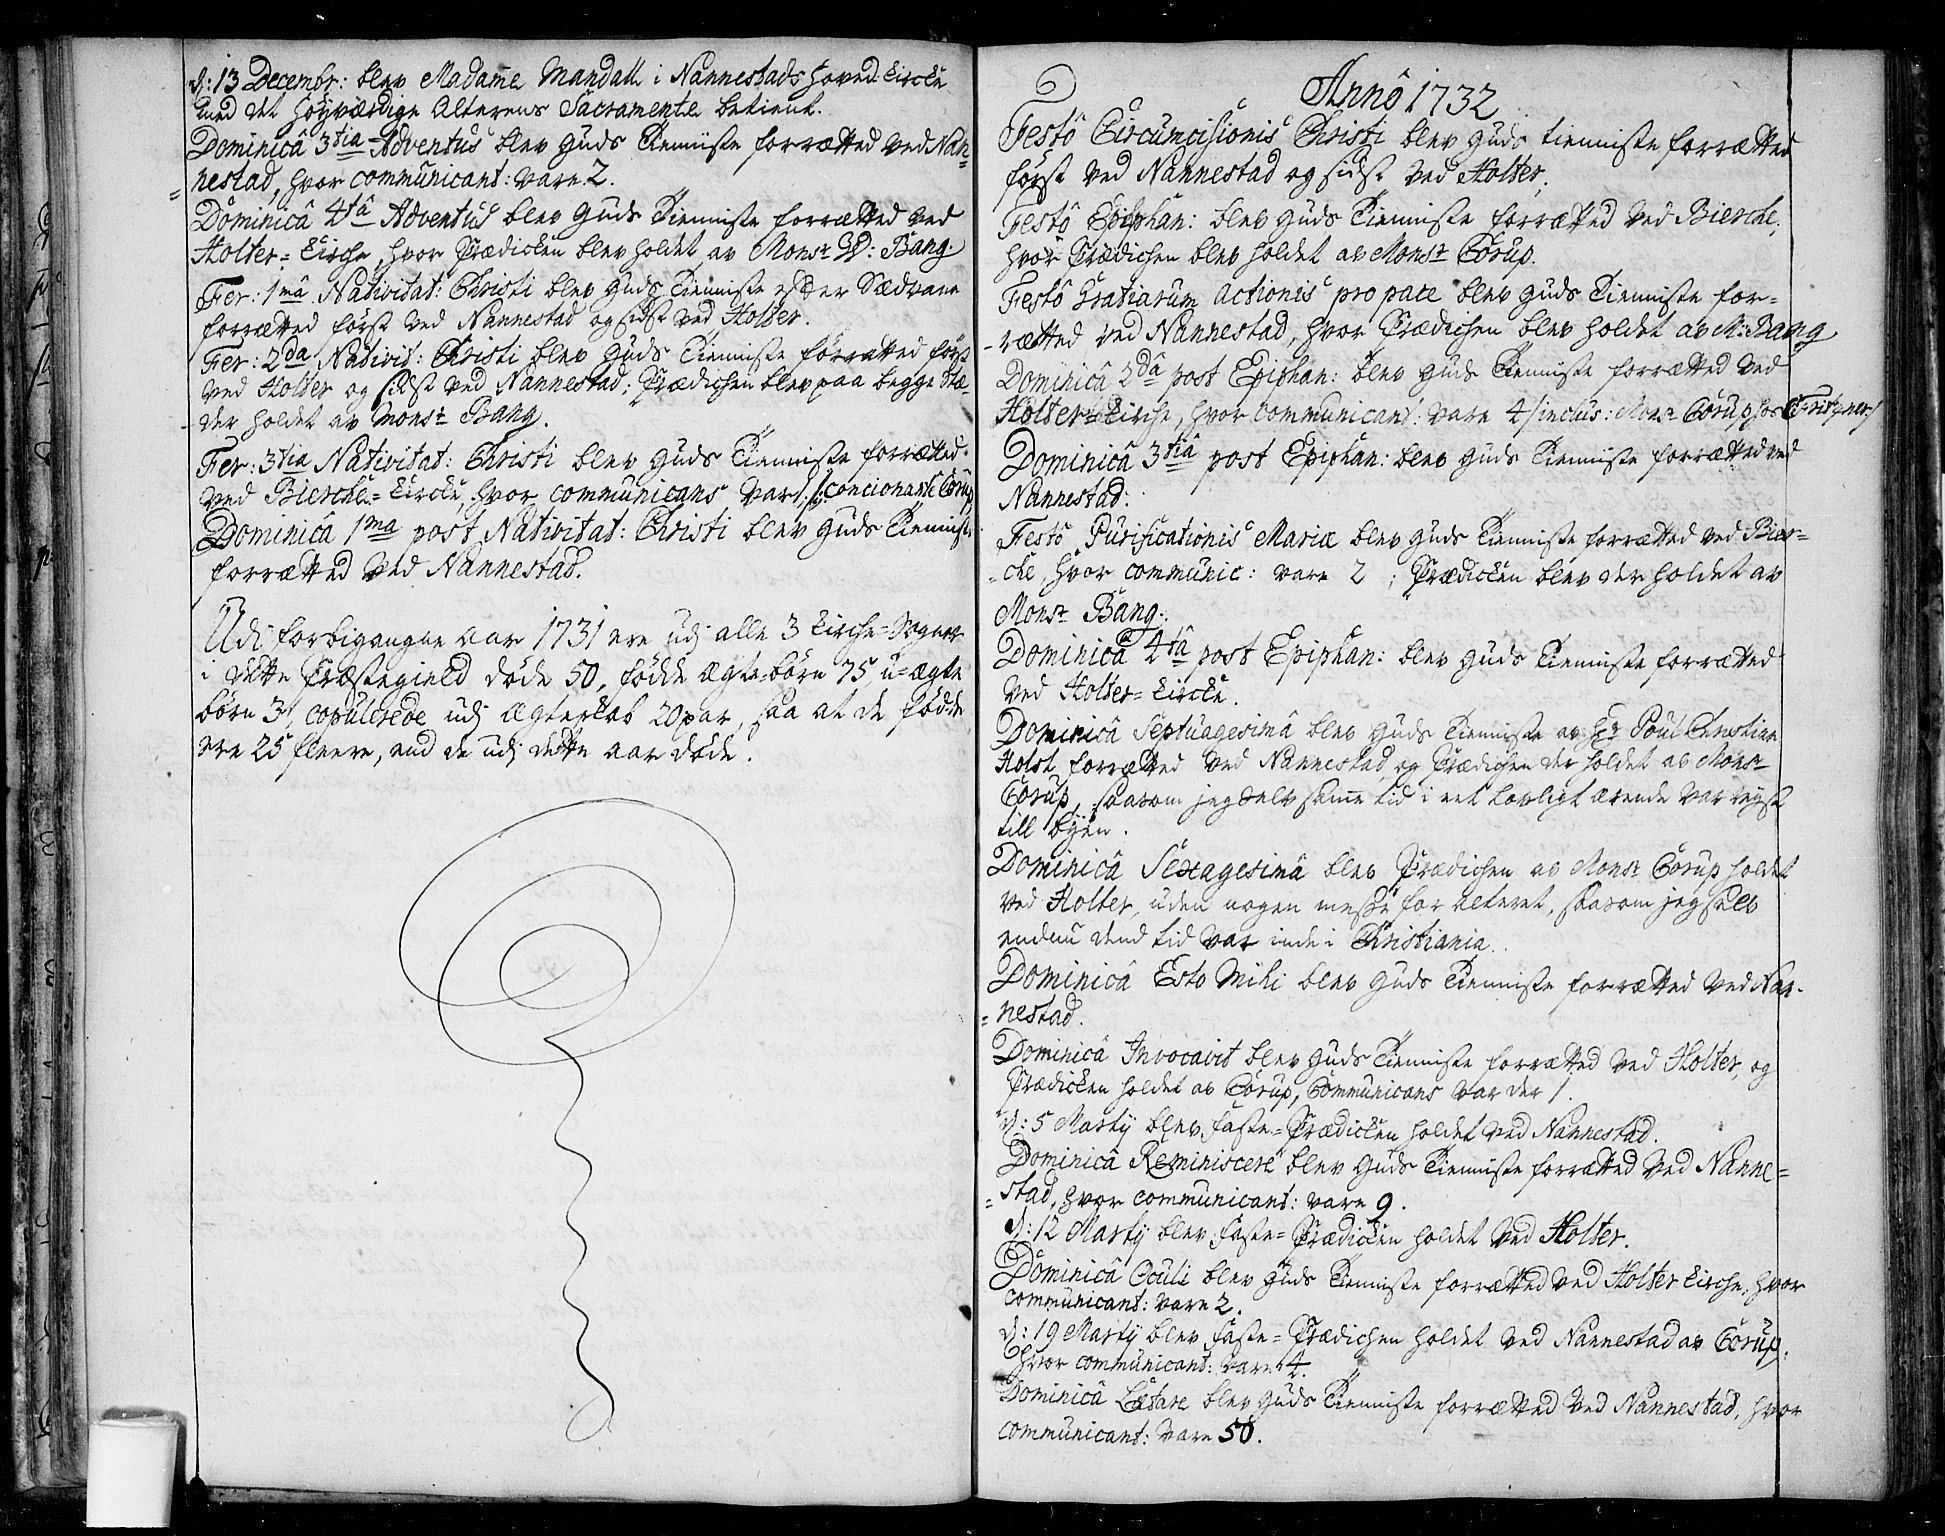 d: 13 Decembr: blev Madame Mandall i Nannestads hoved-Kircke
med det höyværdige Alterens Sacramente betient.
Dominicâ 3tia Adventus blev Guds Tienniste forrætted ved Nan-
nestad, hvor communicant: vare 2.
Dominicâ 4tâ Adventus blev Guds Tienniste forrætted ved
Holter-Kirche, hvor Prædicken blev holdet av Monsr W: Bang.
Fer: 1mâ Nativitat: Christi blev Guds Tienniste efter Sædvane
forrætted först ved Nannestad og sidst ved Holter.
Fer: 2da Nativit: Christi blev Guds Tienniste forrætted först
ved Holter og sidst ved Nannestad; Prædichen blev paa begge Stæ-
der holdet av Monsr Bang.
Fer: 3tia Nativitat: Christi blev Guds Tienniste forrætted
ved Bierche-Kircke, hvor communicans var 1, concionante Corup
Dominicâ 1ma post Nativitat: Christi blev Guds Tienniste
forrætted ved Nannestad.
Udi forbigangne aar 1731 ere udj alle 3 Kirche-Sogner
i dette Præstegield döde 50, födde ægte-börn 75, u-ægte
börn 3, copulerede udj Ægteskab 20 par, saa at de födde
ere 25 fleere, end de udj dette aar döde.
Annô 1732
Festô Circumcisionis Christi blev Guds tienniste forrætted
först ved Nannestad og sidst ved Holter.
Festô Epiphan: blev Guds Tienniste forrætted ved Bierche,
hvor Prædichen blev holdet av Monsr Corup.
Festô Gratiarum Actionis pro pace blev Guds Tienniste for-
rætted ved Nannestad, hvor Prædichen blev holdet av M: Bang
Dominicâ 2dâ post Epiphan: blev Guds Tienniste forrætted ved
Holter-Kirche, hvor communicant: vare 4 /inclus: Monsr Corup hos
Dominicâ 3tiâ post Epiphan: blev Guds Tienniste forrætted ved
Nannestad:
Festô Purificationis Mariæ blev Guds Tienniste forrætted ved Bier-
che, hvor communic: vare 2; Prædicken blev der holdet av
Monsr Bang:
Dominicâ 4tâ post Epiphan: blev Guds Tienniste forrætted
ved Holter-Kircke.
Dominicâ Septuagesimâ blev Guds Tienniste av Hr Poul Christian
Holst forrætted ved Nannestad og Prædichen der holdet av Monsr
Corup, saasom jeg selv samme tid i eet lovligt ærende var reyst
till byen.
Dominicâ Sexagesimâ blev Prædichen av Monsr Corup holdet
ved Holter, uden nogen messe for Alteret, saasom jeg selv
endnu dend tid var inde i Christiania.
Dominicâ Esto Mihi blev Guds Tienniste forrætted ved Nan-
nestad.
Dominicâ Invocavit blev Guds Tienniste forrætted ved Holter, og
Prædicken holdet av Corup, Communicans var der 1.
d: 5 Martij blev Faste-Prædicken holdet ved Nannestad.
Dominicâ Reminiscere blev Guds Tienniste forrætted ved Nanne-
stad, hvor communicant: vare 9.
d: 12 Martij blev Faste-Prædicken holdet ved Holter.
Dominicâ Oculi blev Guds Tienniste forrætted ved Holter Kirche, hvor
communicant: vare 2.
d: 19 Martij blev Faste-Prædichen holdet ved Nannestad av Corup,
hvor communicant: vare 4.
Dominicâ Lætare blev Guds Tienniste forrætted ved Nannestad, hvor
communicant: vare 50.